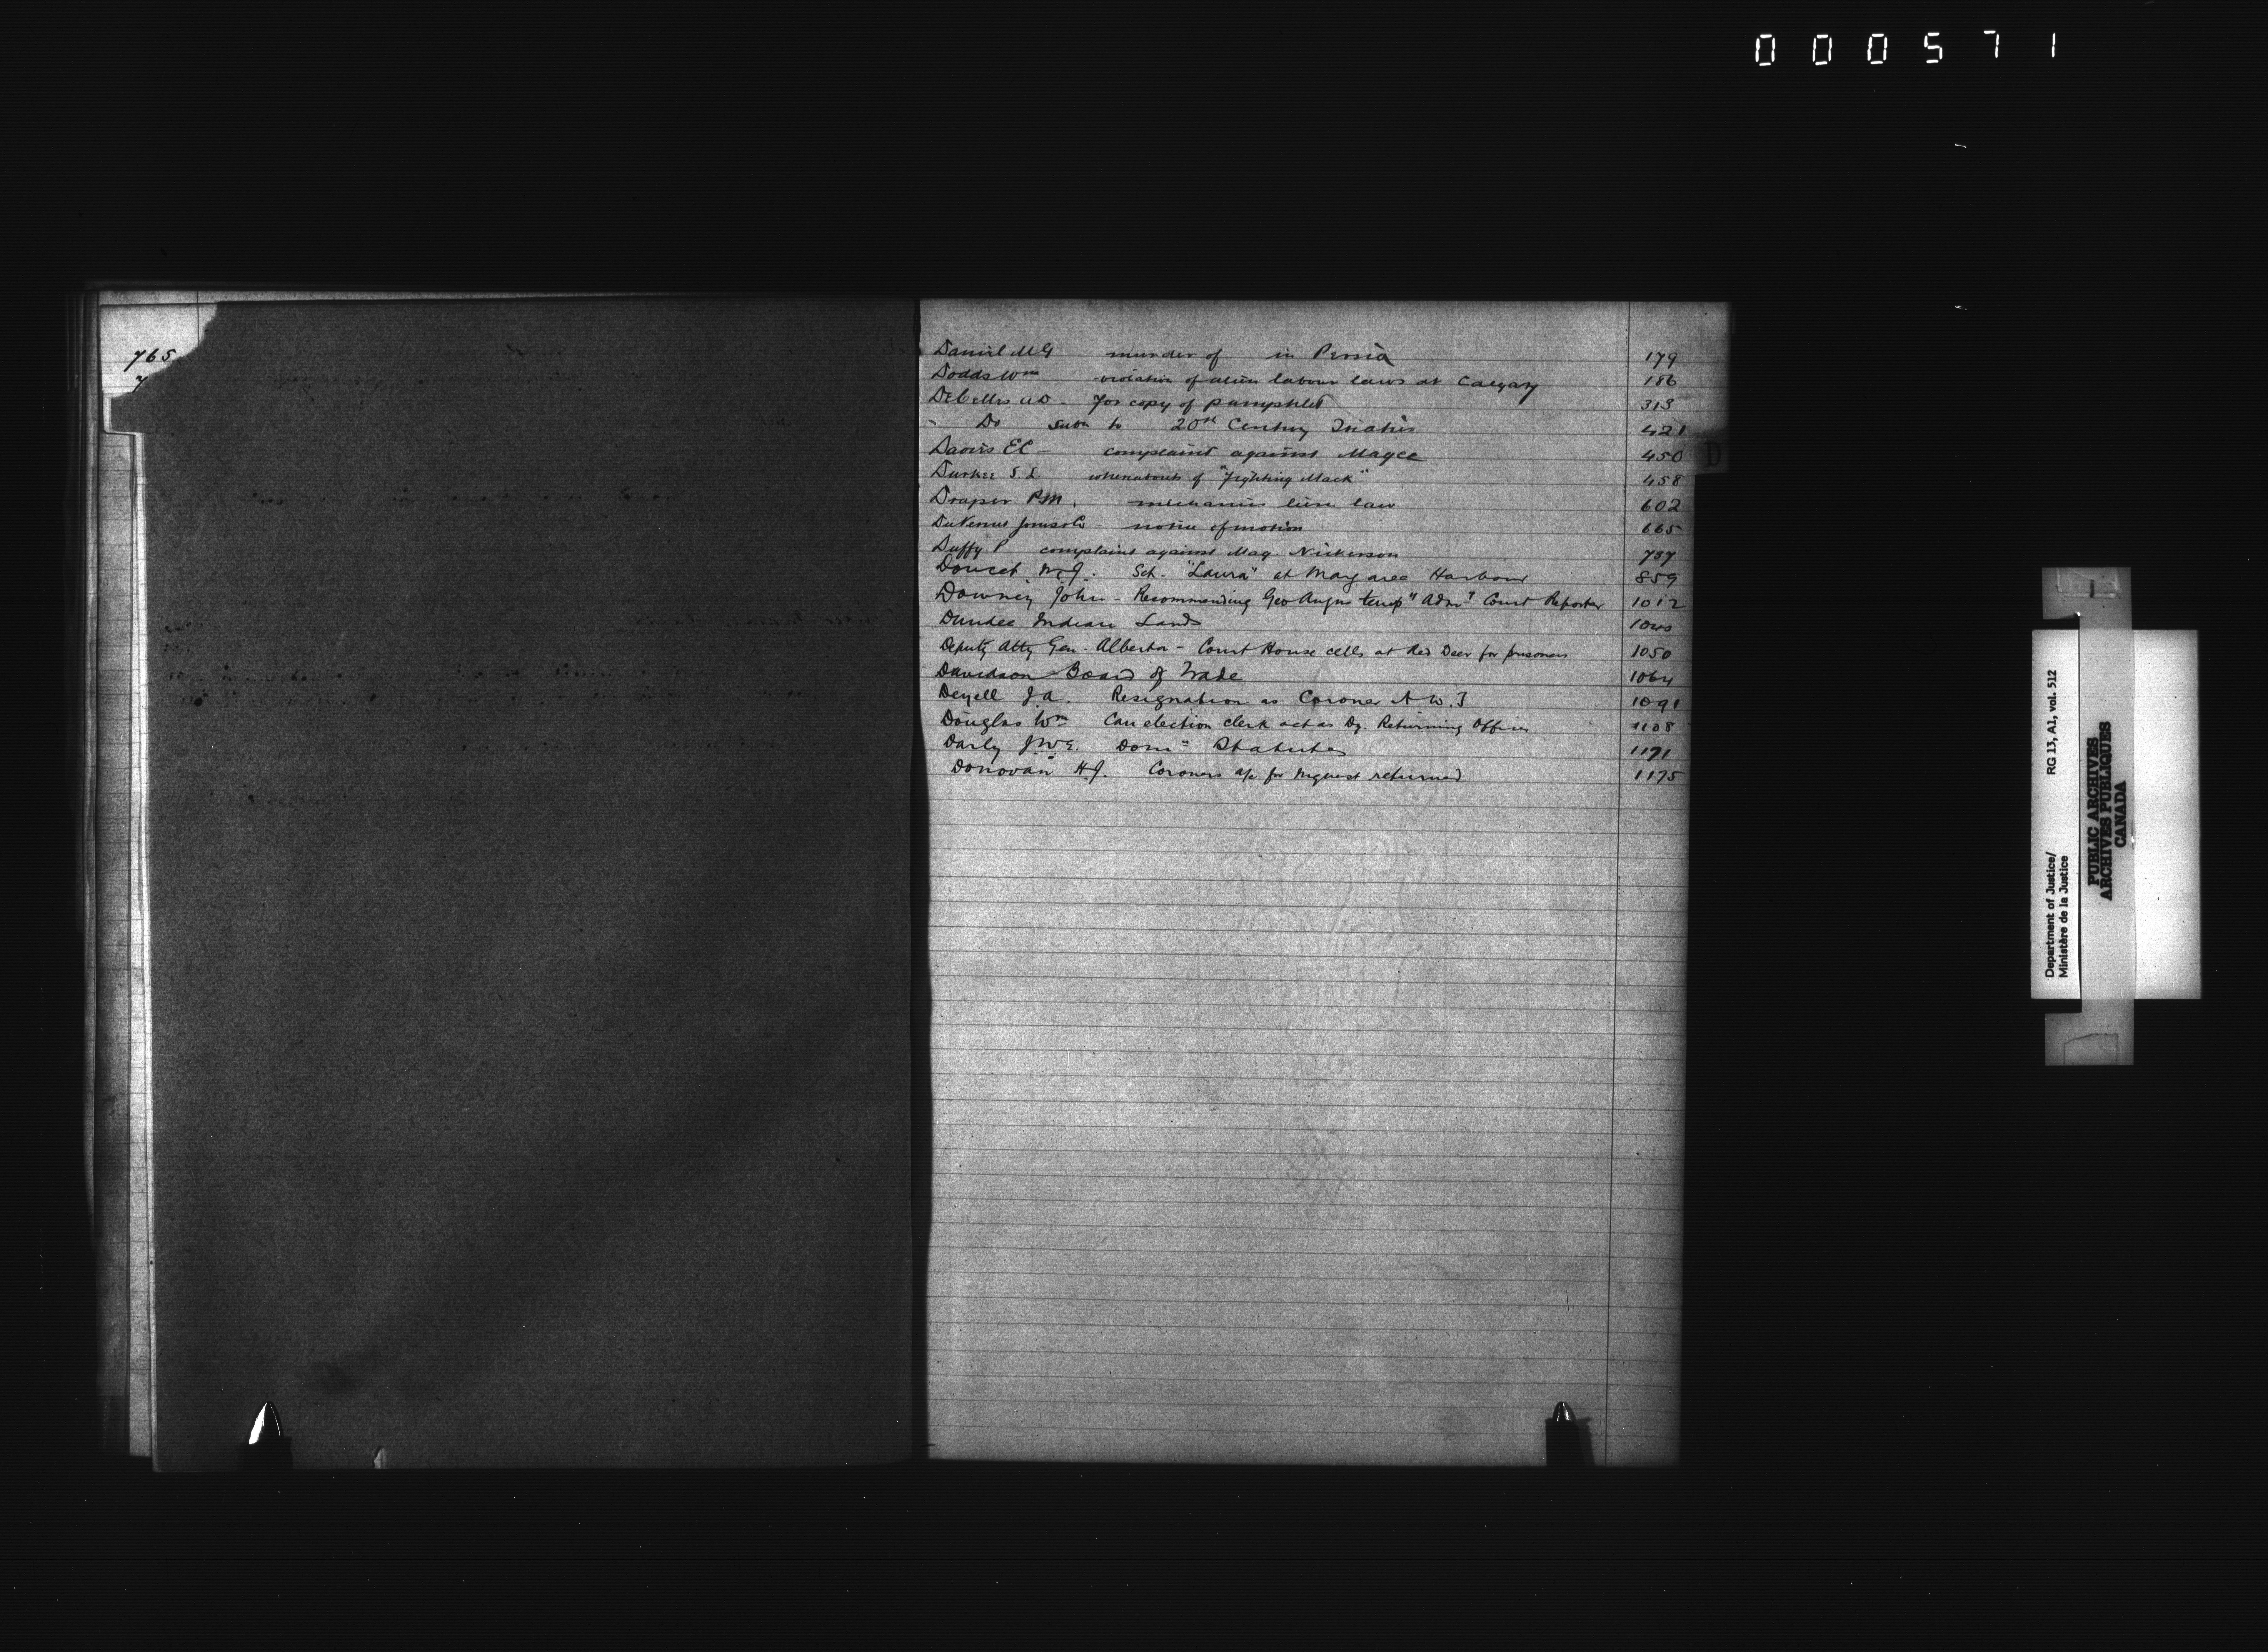 000571
765
7
Daniel M G murder of in Persia 179
Dodds Wm violation of alien labour laws at Calgary 186
DeCelles A D - for copy of pamphlet 313
" Do subn to 20th Century 421
Davis E C - complaint against Magee 450
D
Durkee S L whereabouts of "Fighting Mack" 458
Draper P.M. mechanics lien law 602
DuVernet Jones & Co notice of motion 665
Duffy P complaint against Mag. Nickerson 737
Doucet M.J. Sch. "Laura" at Margaree Harbour 859
Downey John - Recommending Geo Angus temp" Adm Court Reporter 1012
Dundee Indian Lands 1040
Deputy Atty Gen. Alberta - Court House cells at Red Deer for prisoners 1050
Davidson Board of Trade 1064
Deyell J.A. Resignation as Coroner N.W.T 1091
Douglas Wm Can election clerk act as Dy. Returning Officer 1108
Darly J.W.E. Domn Statutes 1171
Donovan H.J. Coroners a/c for inquest returned 1175
Department of Justice/ RG 13, A1, vol. 512
Ministère de la Justice
PUBLIC ARCHIVES
ARCHIVES PUBLIQUES
CANADA